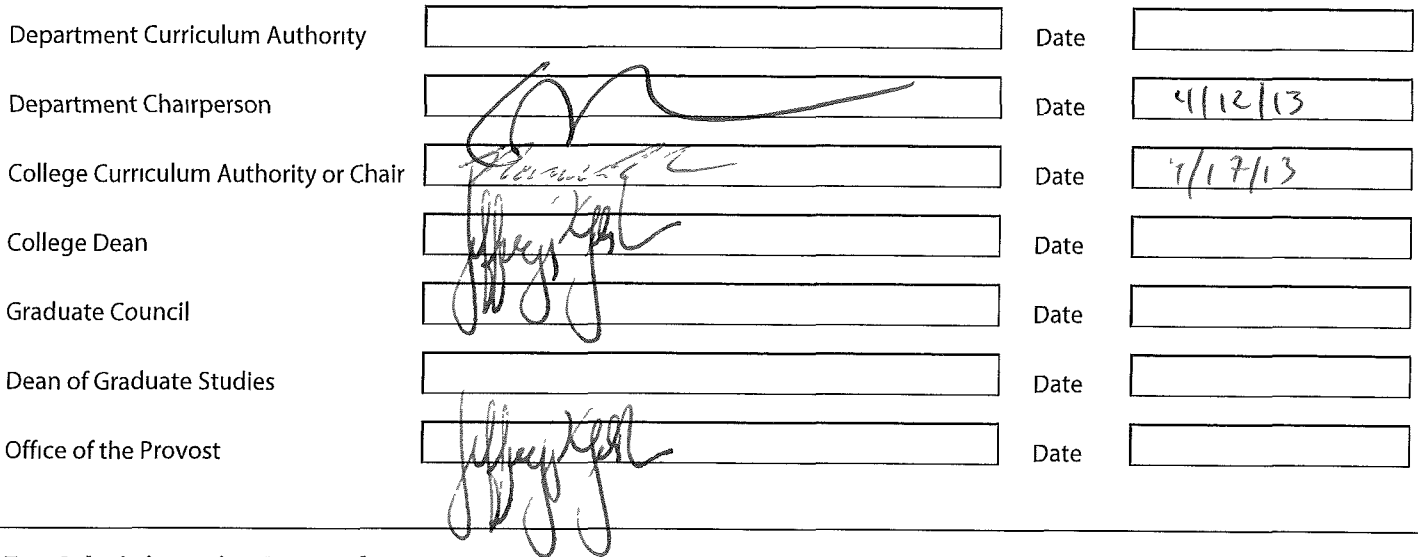 Department Curriculum Authority Date
Department Chairperson Date 4/12/13
College Curriculum Authority or Chair Date 4/17/13
College Dean Jeffrey Date
Graduate Council Date
Dean of Graduate Studies Date
Office of the Provost Jeffrey Date